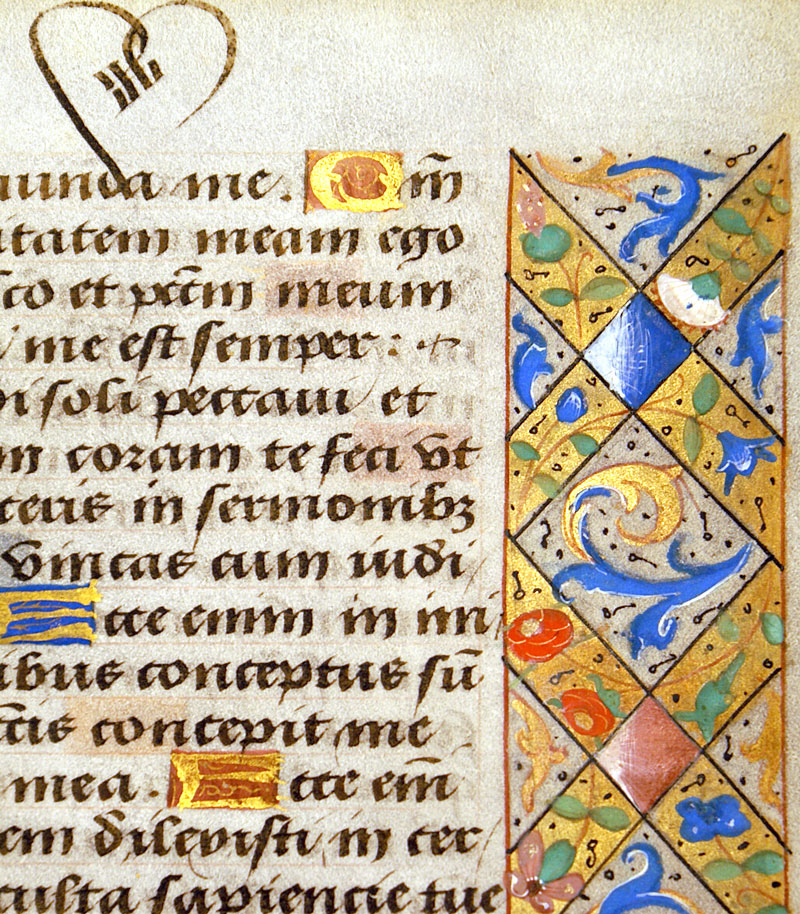 munda me. Qm̄
itatem meam ego
sco et pctm̄ meum
me est semper:
bi soli peccaui et
m coram te feci vt
ceris in sermonibꝫ
vincas cum iudi
Ecce enim in ini
ibus conceptus sū
ctis concepit me
mea. Ecce em̄
em dilexisti in cer
culta sapiencie tue